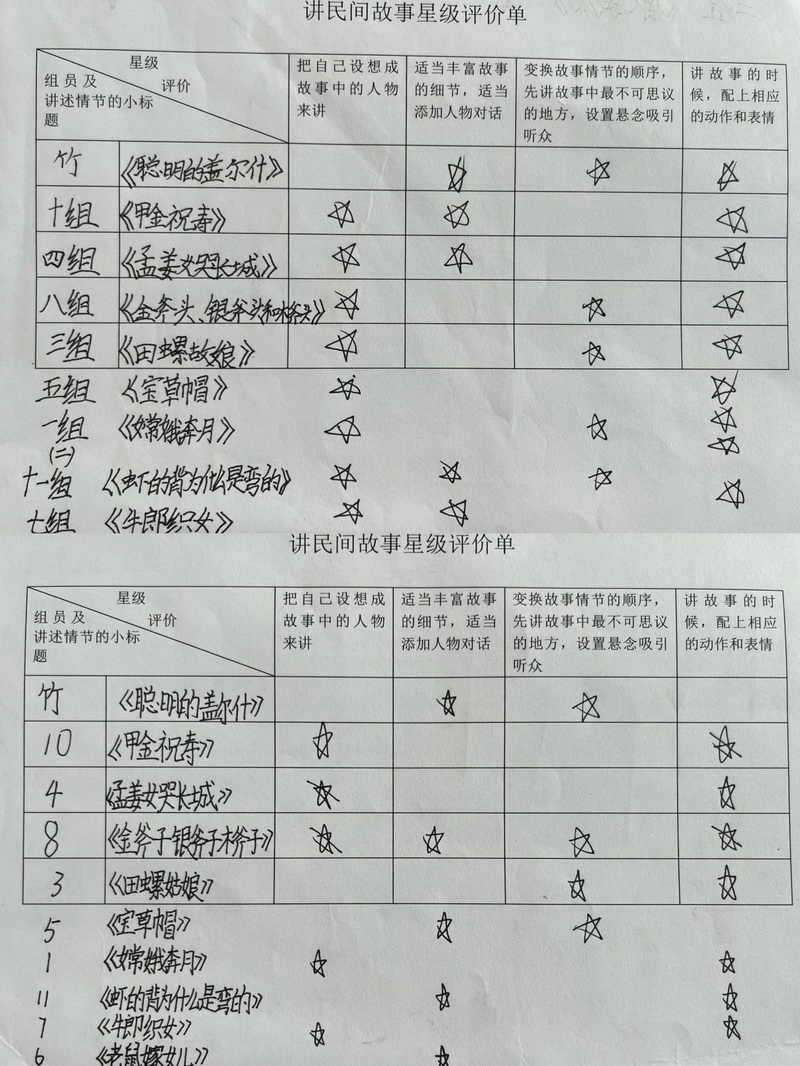 讲民间故事星级评价单
星级
评价
组员及
讲述情节的小标
题
把自己设想成
故事中的人物
来讲
适当丰富故事
的细节，适当
添加人物对话
变换故事情节的顺序，
先讲故事中最不可思议
的地方，设置悬念吸引
听众
讲故事的时
候，配上相应
的动作和表情
竹 《聪明的盖尔什》
十组 《甲金祝寿》
四组 《孟姜女哭长城》
八组 《金斧头、银斧头和木斧头》
三组 《田螺故娘》
五组 《宝草帽》
一组 《嫦娥奔月》
(二)
十一组 《虾的背为什么是弯的》
七组 《牛郎织女》
讲民间故事星级评价单
星级
评价
组员及
讲述情节的小标
题
把自己设想成
故事中的人物
来讲
适当丰富故事
的细节，适当
添加人物对话
变换故事情节的顺序，
先讲故事中最不可思议
的地方，设置悬念吸引
听众
讲故事的时
候，配上相应
的动作和表情
竹 《聪明的盖尔什》
10 《甲金祝寿》
4 《孟姜女哭长城》
8 《金斧子银斧子木斧子》
3 《田螺姑娘》
5 《宝草帽》
1 《嫦娥奔月》
11 《虾的背为什么是弯的》
7 《牛郎织女》
6 《老鼠嫁女儿》